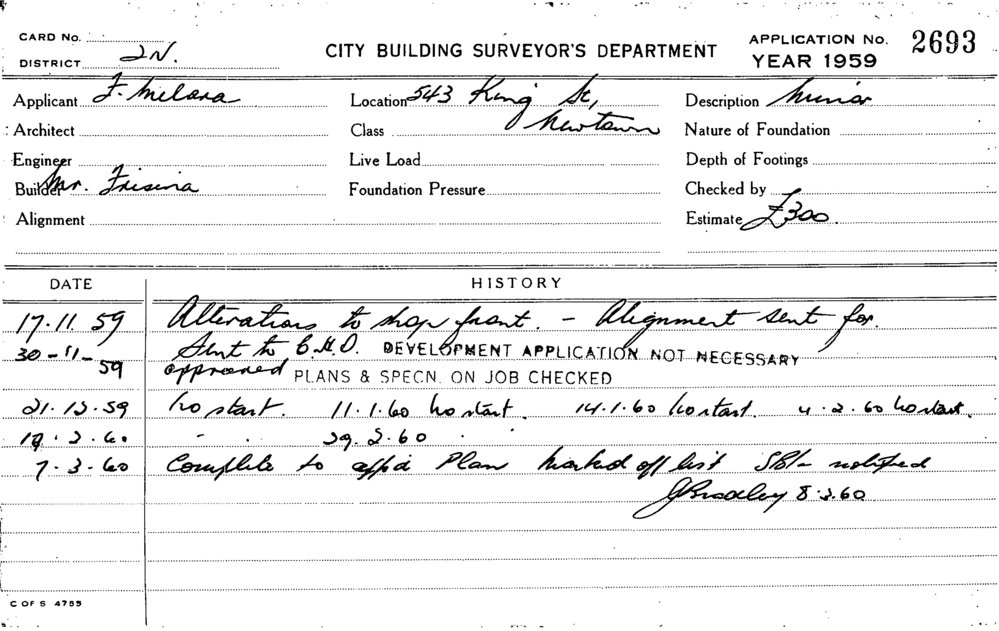 CARD No.
DISTRICT 2N.
CITY BUILDING SURVEYOR'S DEPARTMENT
APPLICATION No. 2693
YEAR 1959
Applicant F. Melara Location 543 King St, Description Minor
Architect Class Newtown Nature of Foundation
Engineer Live Load Depth of Footings
Builder Mr. Frisina Foundation Pressure Checked by
Alignment Estimate £300.
DATE HISTORY
17.11.59 Alterations to shop front. - Alignment sent for.
30-11-59 Sent to C.H.O. DEVELOPMENT APPLICATION NOT NECESSARY
approved PLANS & SPECN. ON JOB CHECKED
21.12.59 No start. 11.1.60 No start. 14.1.60 No start. 4.2.60 No start.
2.60 29.2.60
7.3.60 Complete to app'd Plan Marked off list notified
JBradley 8.3.60
C OF S 4755